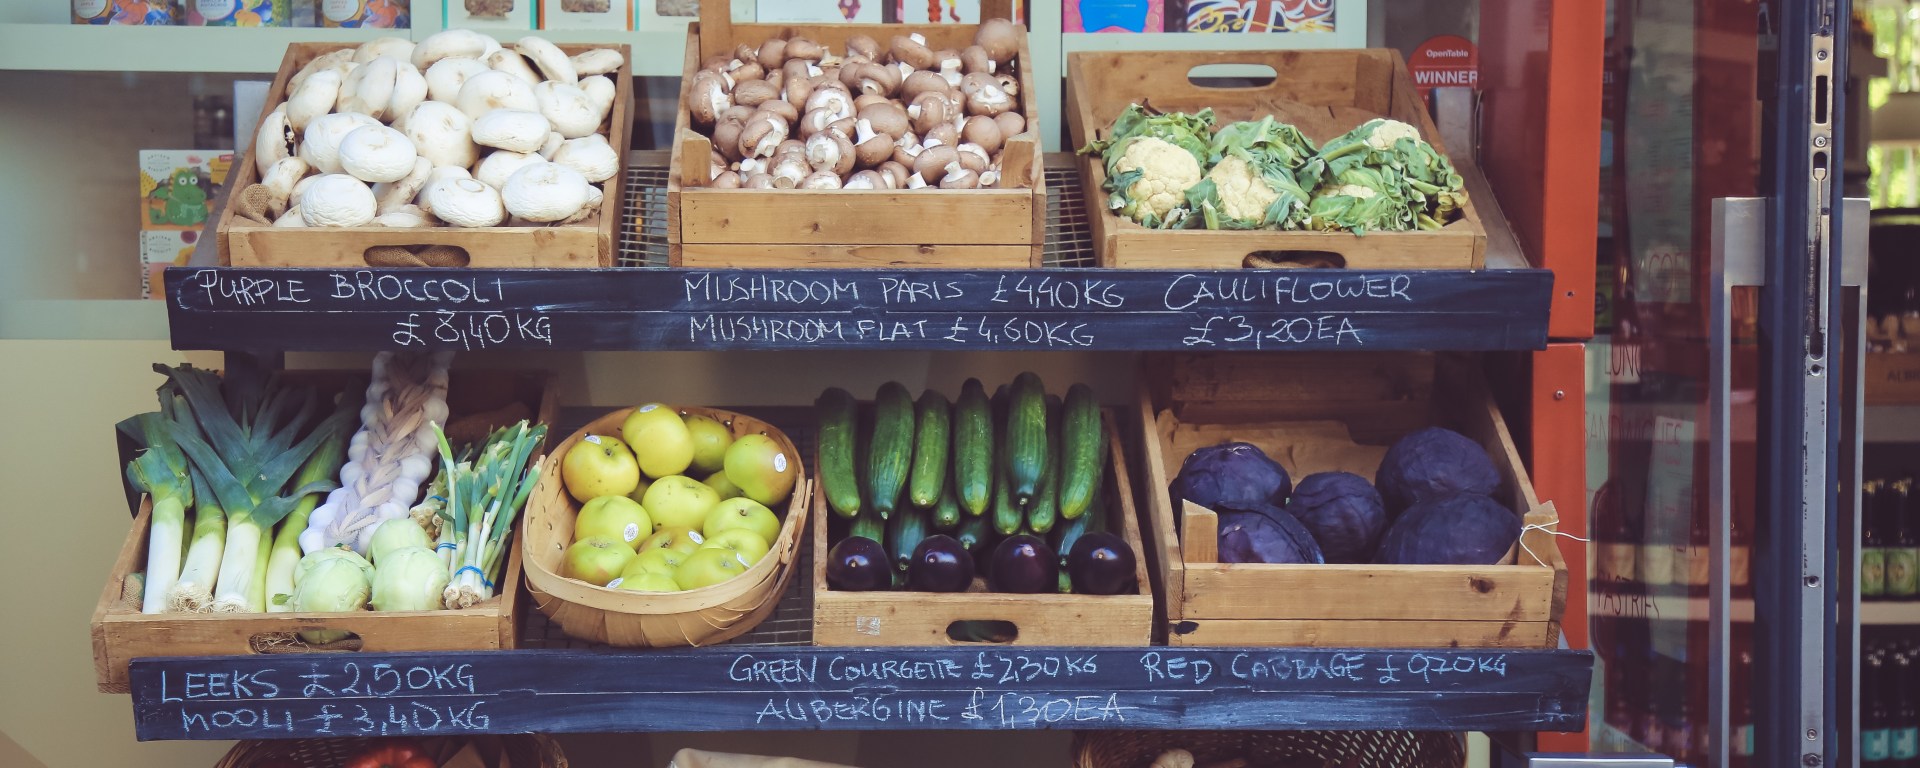 OpenTable
WINNER
PURPLE BROCCOLI
£8,40KG
MUSHROOM PARIS £4,40KG
MUSHROOM FLAT £4,60KG
CAULIFLOWER
£3,20EA
LEEKS £2,50KG
MOOLI £3,40KG
GREEN COURGETTE £2,30KG
AUBERGINE £1,30EA
RED CABBAGE £0,70KG